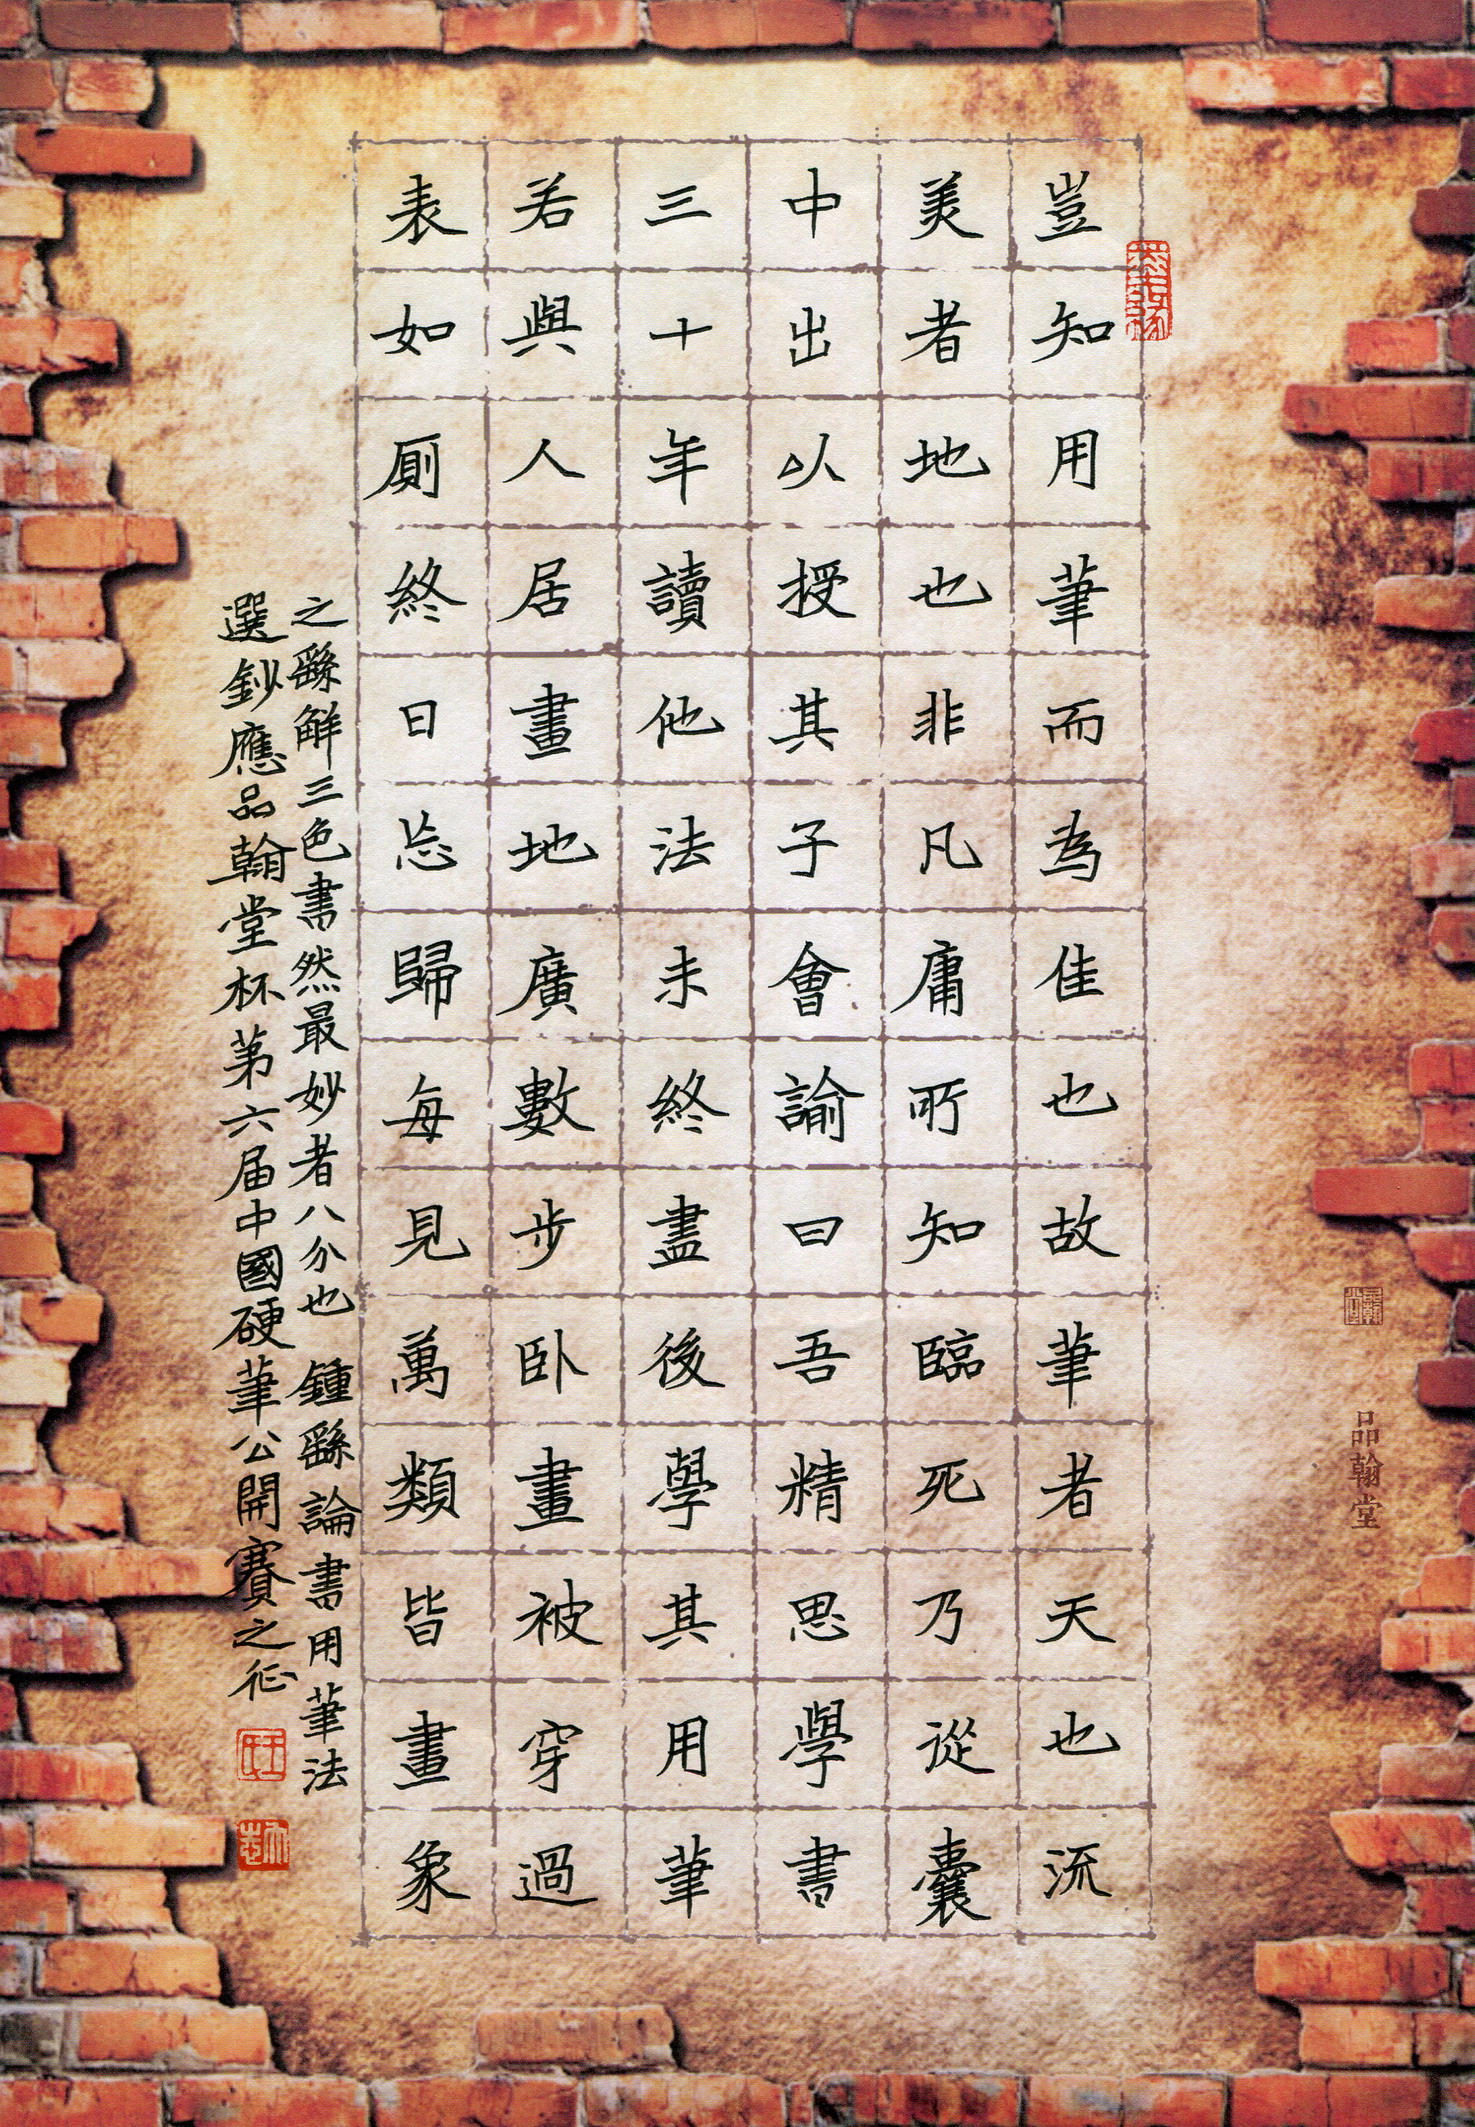 豈知用筆而為佳也故筆者天也流
美者地也非凡庸所知臨死乃從囊
中出以授其子會諭曰吾精思學書
三十年讀他法未終盡後學其用筆
若與人居畫地廣數步卧畫被穿過
表如厠終日忘歸每見萬類皆畫象
之繇解三色書然最妙者八分也 鍾繇論書用筆法
選鈔應品翰堂杯第六届中國硬筆公開賽之征
品翰堂